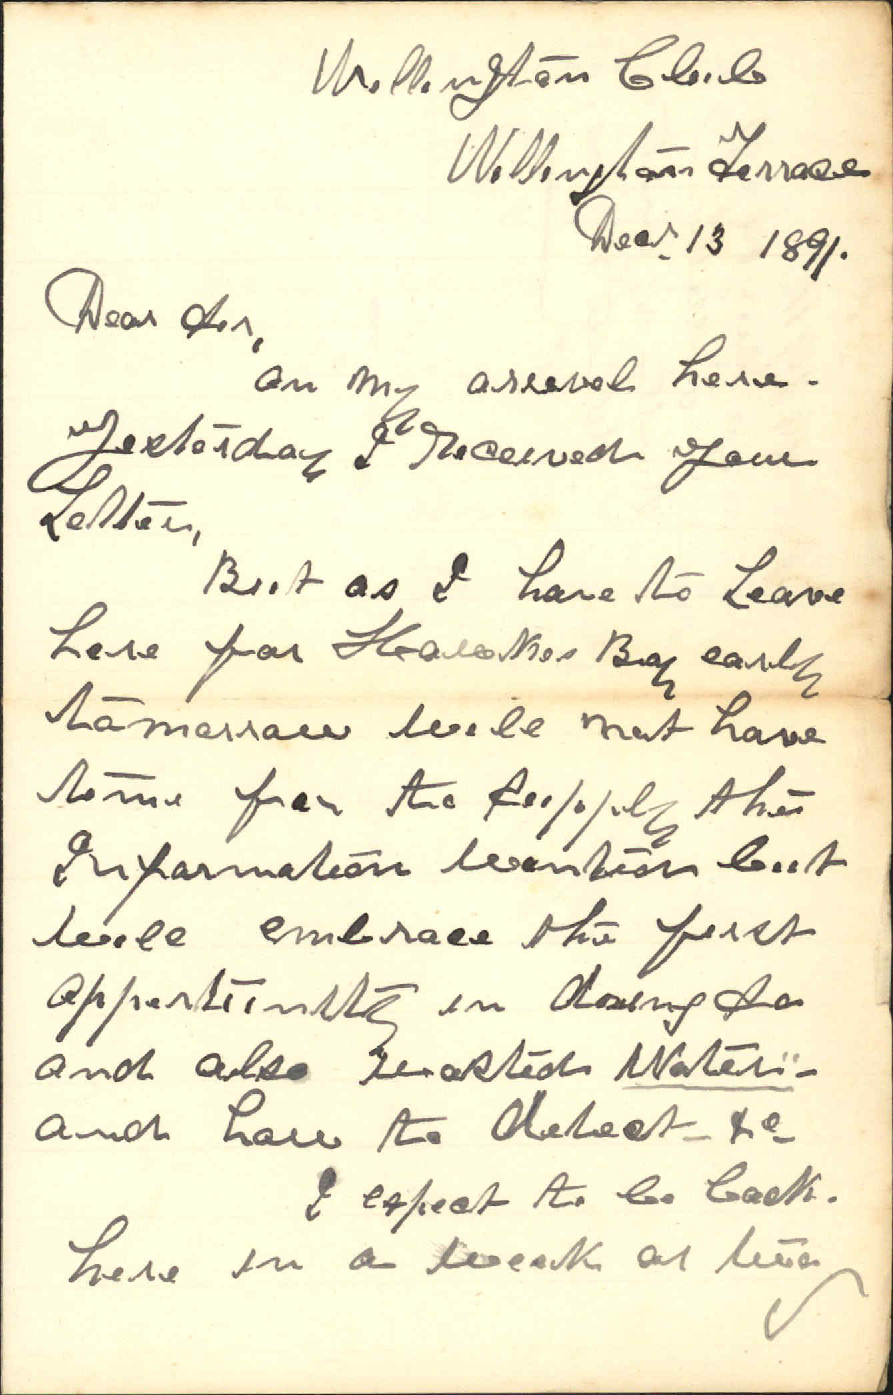 Wellington Club
Wellington Terrace
Decr. 13 1891.
Dear Sir,
on my arrival here -
Yesterday I Received your
Letter,
But as I have to Leave
here for Hawkes Bay early
tomorrow will not have
time for to supply the
Information wanted but
will embrace the first
opportunity in doing so
and also wasted Water"-
and how to detect - &c -
I expect to be back.
here in a week or two